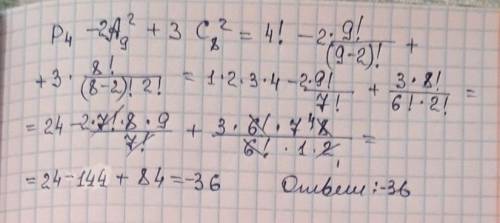 P₄ - 2A₉² + 3 C₈² = 4! - 2·9!/(9-2)! +
+ 3 · 8!/((8-2)! 2!) = 1·2·3·4 - 2·9!/7! + 3·8!/(6!·2!) =
= 24 - 2·7!·8·9/7! + 3·6!·7·8⁴/(6!·1·2₁) =
= 24 - 144 + 84 = -36 Ответ: -36